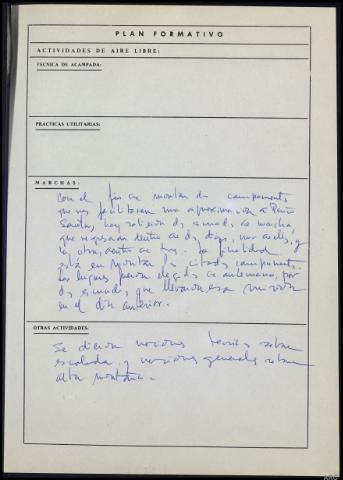 PLAN FORMATIVO
ACTIVIDADES DE AIRE LIBRE:
TECNICA DE ACAMPADA:
PRACTICAS UTILITARIAS:
MARCHAS:
Con el fin de montar dos campamentos
que nos facilitaran una aproximación a Peña
Santa, hoy salieron dos escuadras de marcha,
que regresarán dentro de dos días, una de ellas, y
la otra, dentro de tres. La finalidad
está en montar los citados campamentos.
Los lugares fueron elegidos de antemano, por
dos escuadras, que llevaron esa misión
en el día anterior.
OTRAS ACTIVIDADES:
Se dieron nociones teóricas sobre
escalada y nociones generales sobre
alta montaña.